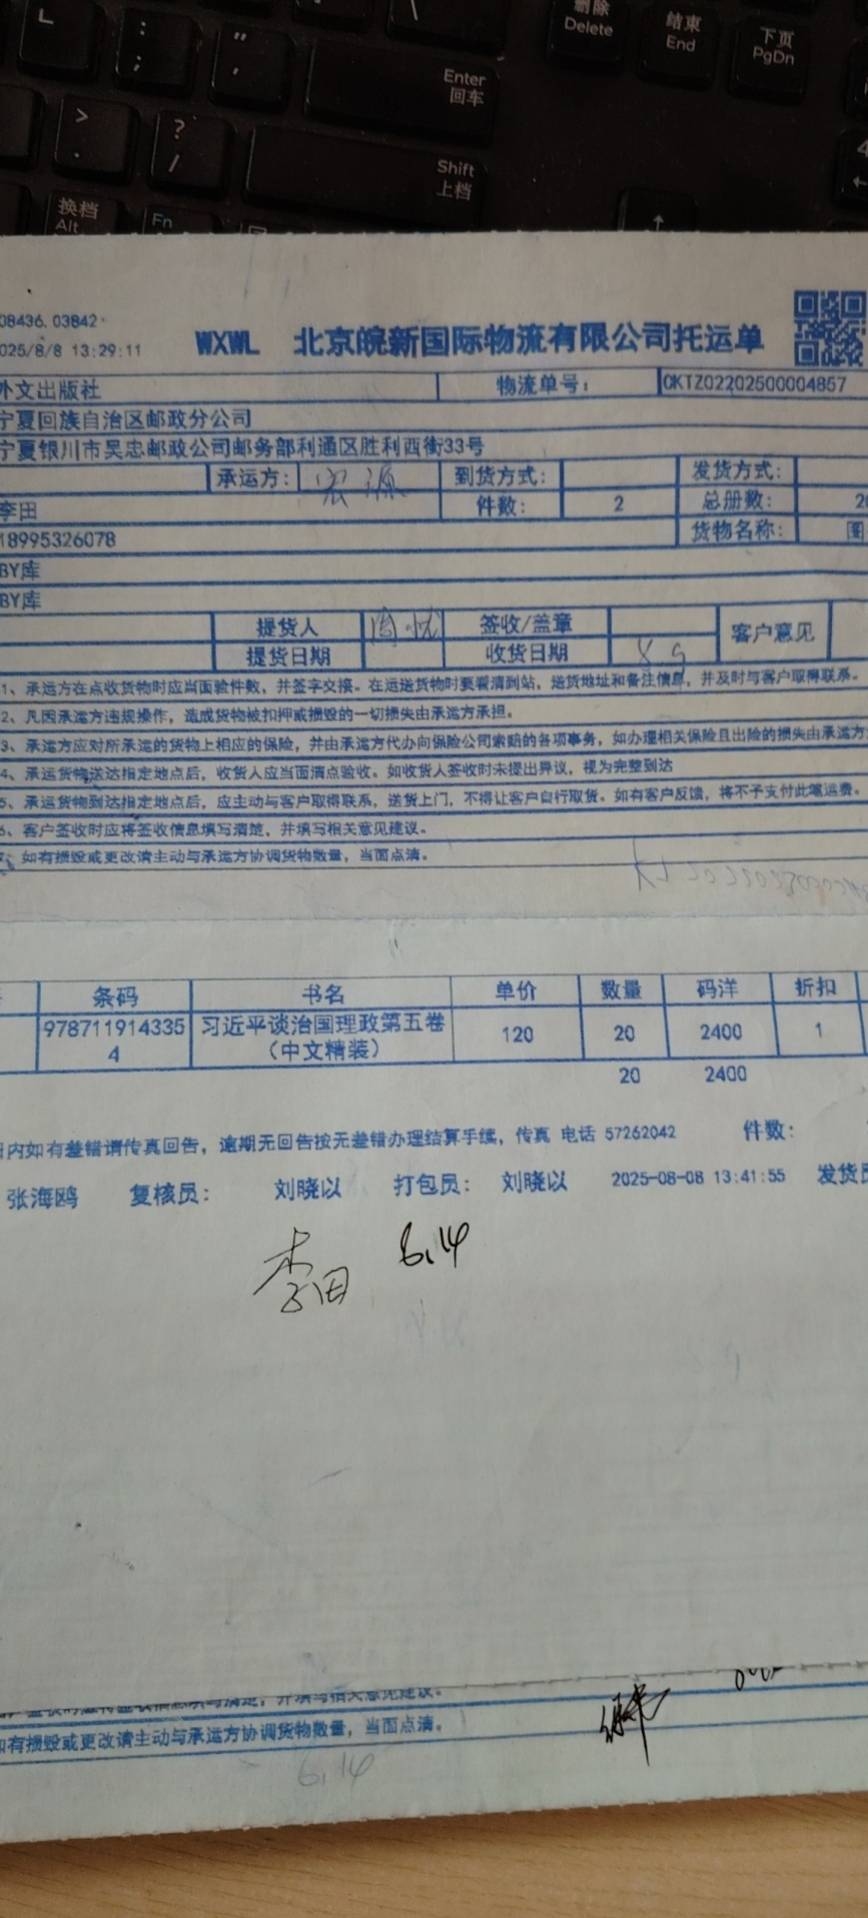 删除
Delete
结束
End
下页
PgDn
Enter
回车
Shift
上档
换档
Alt
Fn
08436.03842
025/8/8 13:29:11
WXWL 北京皖新国际物流有限公司托运单
外文出版社 物流单号: CKTZ02202500004857
宁夏回族自治区邮政分公司
宁夏银川市吴忠邮政公司邮务部利通区胜利西街33号
承运方: 宏源 到货方式: 发货方式:
李田 件数: 2 总册数:
18995326078 货物名称: 图
BY库
BY库
提货人 签收/盖章 客户意见
提货日期 收货日期 8.9
1、承运方在点收货物时应当面验件数，并签字交接。在运送货物时要看清到站，送货地址和备注信息，并及时与客户取得联系。
2、凡因承运方违规操作，造成货物被扣押或损毁的一切损失由承运方承担。
3、承运方应对所承运的货物上相应的保险，并由承运方代办向保险公司索赔的各项事务，如办理相关保险且出险的损失由承运方
4、承运货物送达指定地点后，收货人应当面清点验收。如收货人签收时未提出异议，视为完整到达
5、承运货物到达指定地点后，应主动与客户取得联系，送货上门，不得让客户自行取货。如有客户反馈，将不予支付此笔运费。
6、客户签收时应将签收信息填写清楚，并填写相关意见建议。
7、如有损毁或更改请主动与承运方协调货物数量，当面点清。
条码 书名 单价 数量 码洋 折扣
9787119143354 习近平谈治国理政第五卷（中文精装） 120 20 2400 1
20 2400
日内如有差错请传真回告，逾期无回告按无差错办理结算手续，传真 电话 57262042 件数:
张海鸥 复核员: 刘晓以 打包员: 刘晓以 2025-08-08 13:41:55 发货员
李田 8.14
如有损毁或更改请主动与承运方协调货物数量，当面点清。
8.14